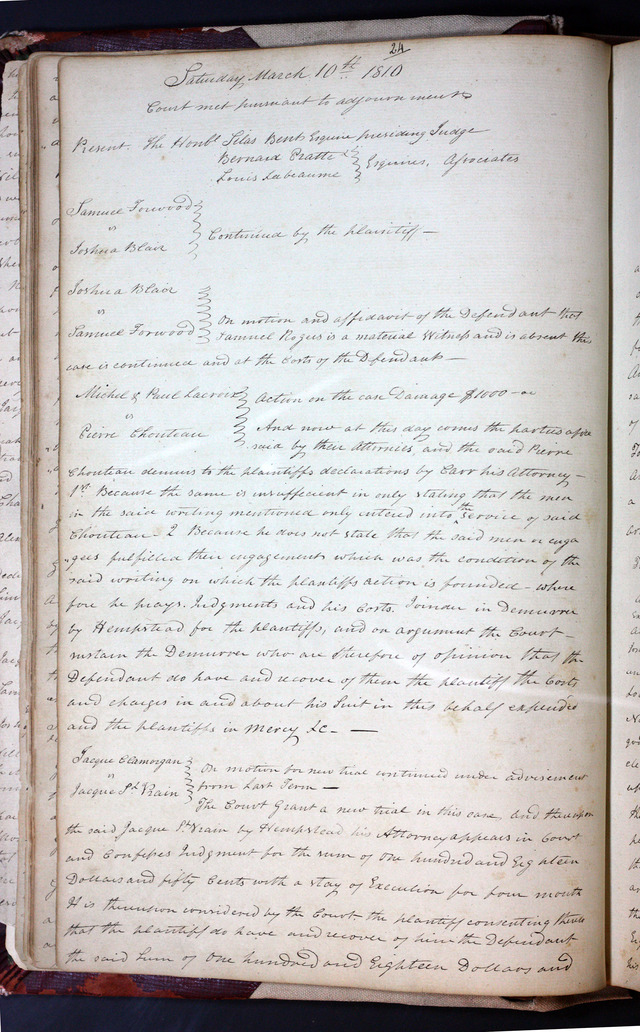 24
Saturday March 10th 1810
Court met pursuant to adjournment
Present. The Honbl Silas Bent Esquire presiding Judge
Bernard Pratte &
Louis Labeaume
Esquires, Associates
Samuel Forwood
vs
Joshua Blair
Continued by the plaintiff —
Joshua Blair
vs
Samuel Forwood
On motion and affidavit of the Defendant that
Samuel Rogus is a material Witness and is absent this
case is continued and at the Costs of the Defendant —
Michel & Paul Lacroix
vs
Pierre Chouteau
Action on the case Damage $1000 —
And now at this day comes the parties afore
said by their Attornies, and the said Pierre
Chouteau demurs to the plaintiffs declarations by Carr his Attorney —
1st Because the same is insufficient in only stating that the men
in the said writing mentioned only entered into the service of said
Chouteau — 2 Because he does not state that the said men or enga
gees fulfilled their engagements which was the condition of the
said writing on which the plaintiffs action is founded — where
fore he prays Judgments and his Costs. Joinder in Demurrer
by Hempstead for the plaintiffs, and on argument the Court —
sustain the Demurrer who are therefore of opinion that the
Defendant do have and recover of them the plaintiff the Costs
and charges in and about his Suit in this behalf expended
and the plaintiffs in Mercy &c — —
Jacque Clamorgan
vs
Jacque St Vrain
On motion for new trial continued under advisement
from Last Term —
The Court Grant a new trial in this case, and thereupon
the said Jacque St Vrain by Hempstead his Attorney appears in Court
and Confesses Judgment for the sum of One hundred and Eighteen
Dollars and fifty Cents with a stay of Execution for four month
It is thereupon considered by the Court the plaintiff consenting thereto
that the plaintiff do have and recover of him the Defendant
the said Sum of One hundred and Eighteen Dollars and